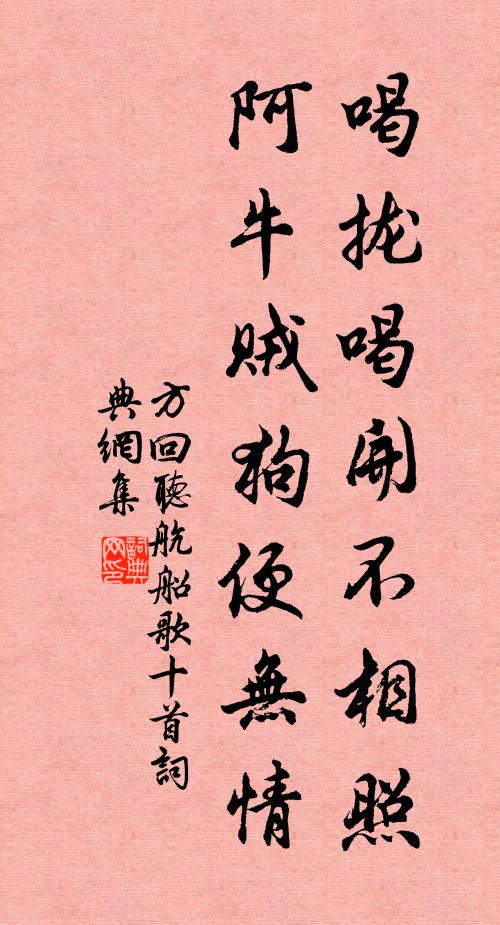 喝拢喝開不相照
阿牛贼狗便無情
方回聽航船歌十首詞
典網集
詞典网印